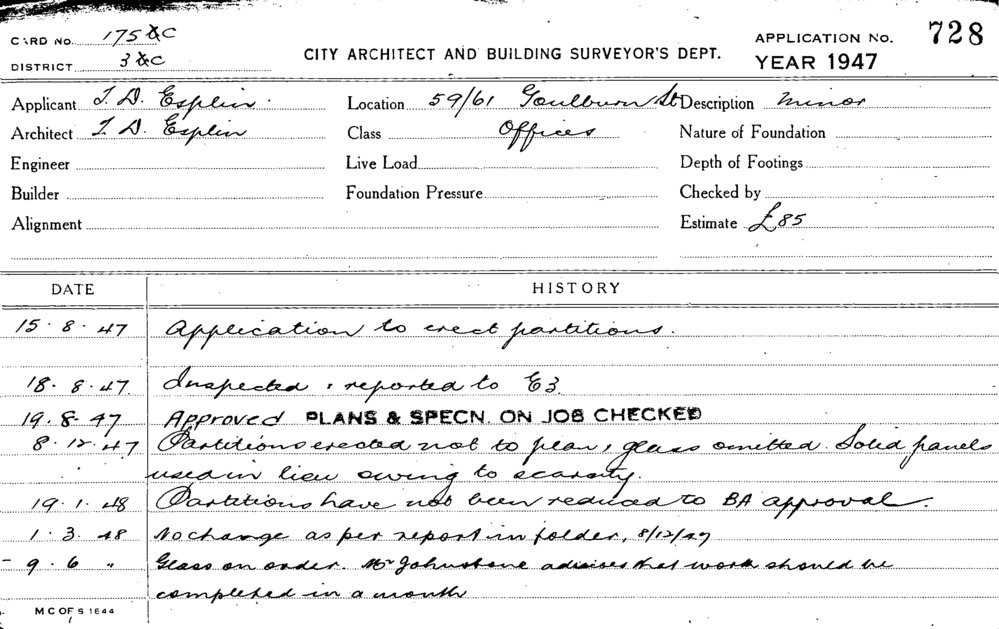 CARD No. 175 & C
DISTRICT 3 & C
CITY ARCHITECT AND BUILDING SURVEYOR'S DEPT.
APPLICATION No. 728
YEAR 1947
Applicant T. D. Esplin. Location 59/61 Goulburn St Description Minor
Architect T. D. Esplin Class Offices Nature of Foundation
Engineer Live Load Depth of Footings
Builder Foundation Pressure Checked by
Alignment Estimate £85
DATE HISTORY
15.8.47 Application to erect partitions.
18.8.47. Inspected & reported to E3
19.8.47 Approved PLANS & SPECN. ON JOB CHECKED
8.12.47 Partitions erected not to plan, glass omitted. Solid panels
used in lieu owing to scarsity.
19.1.48 Partitions have not been reduced to BA approval.
1.3.48 No change as per report in folder, 8/12/47
- 9.6 " Glass on order. Mr Johnstone advises that work should be
completed in a month
M C OF S 1644